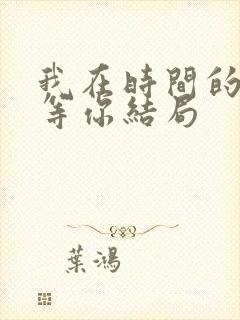 我在時間的
等你結局
葉鴻